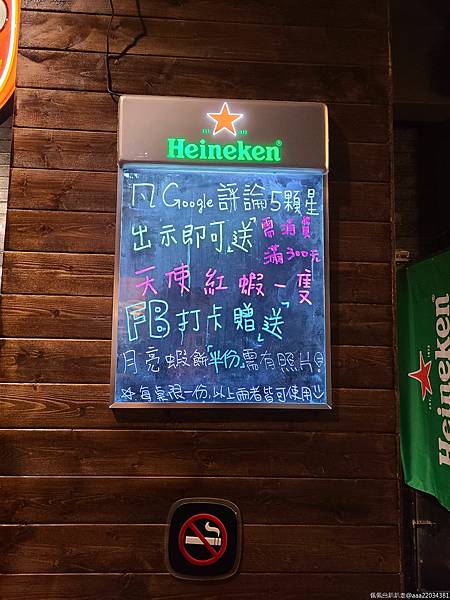 Heineken
凡Google評論5顆星
出示即可送「需消費
滿300元
天使紅蝦一隻
FB打卡贈「送」
月亮蝦餅「半份」需有照片
※每桌限一份,以上兩者皆可使用
Heineken
佩佩曲趴趴走@aaa22034381